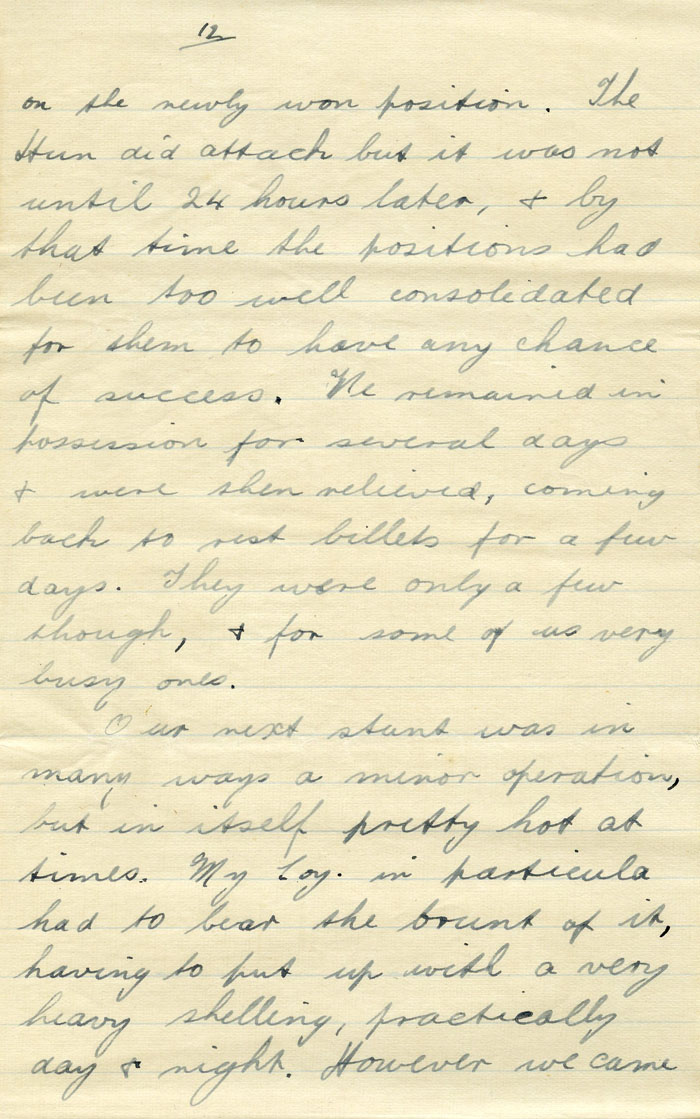 12
on the newly won position. The
Hun did attack but it was not
until 24 hours later, & by
that time the positions had
been too well consolidated
for them to have any chance
of success. We remained in
possession for several days
& were then relieved, coming
back to rest billets for a few
days. They were only a few
though, & for some of us very
busy ones.
Our next stunt was in
many ways a minor operation,
but in itself pretty hot at
times. My Coy. in particula
had to bear the brunt of it,
having to put up with a very
heavy shelling, practically
day & night. However we came